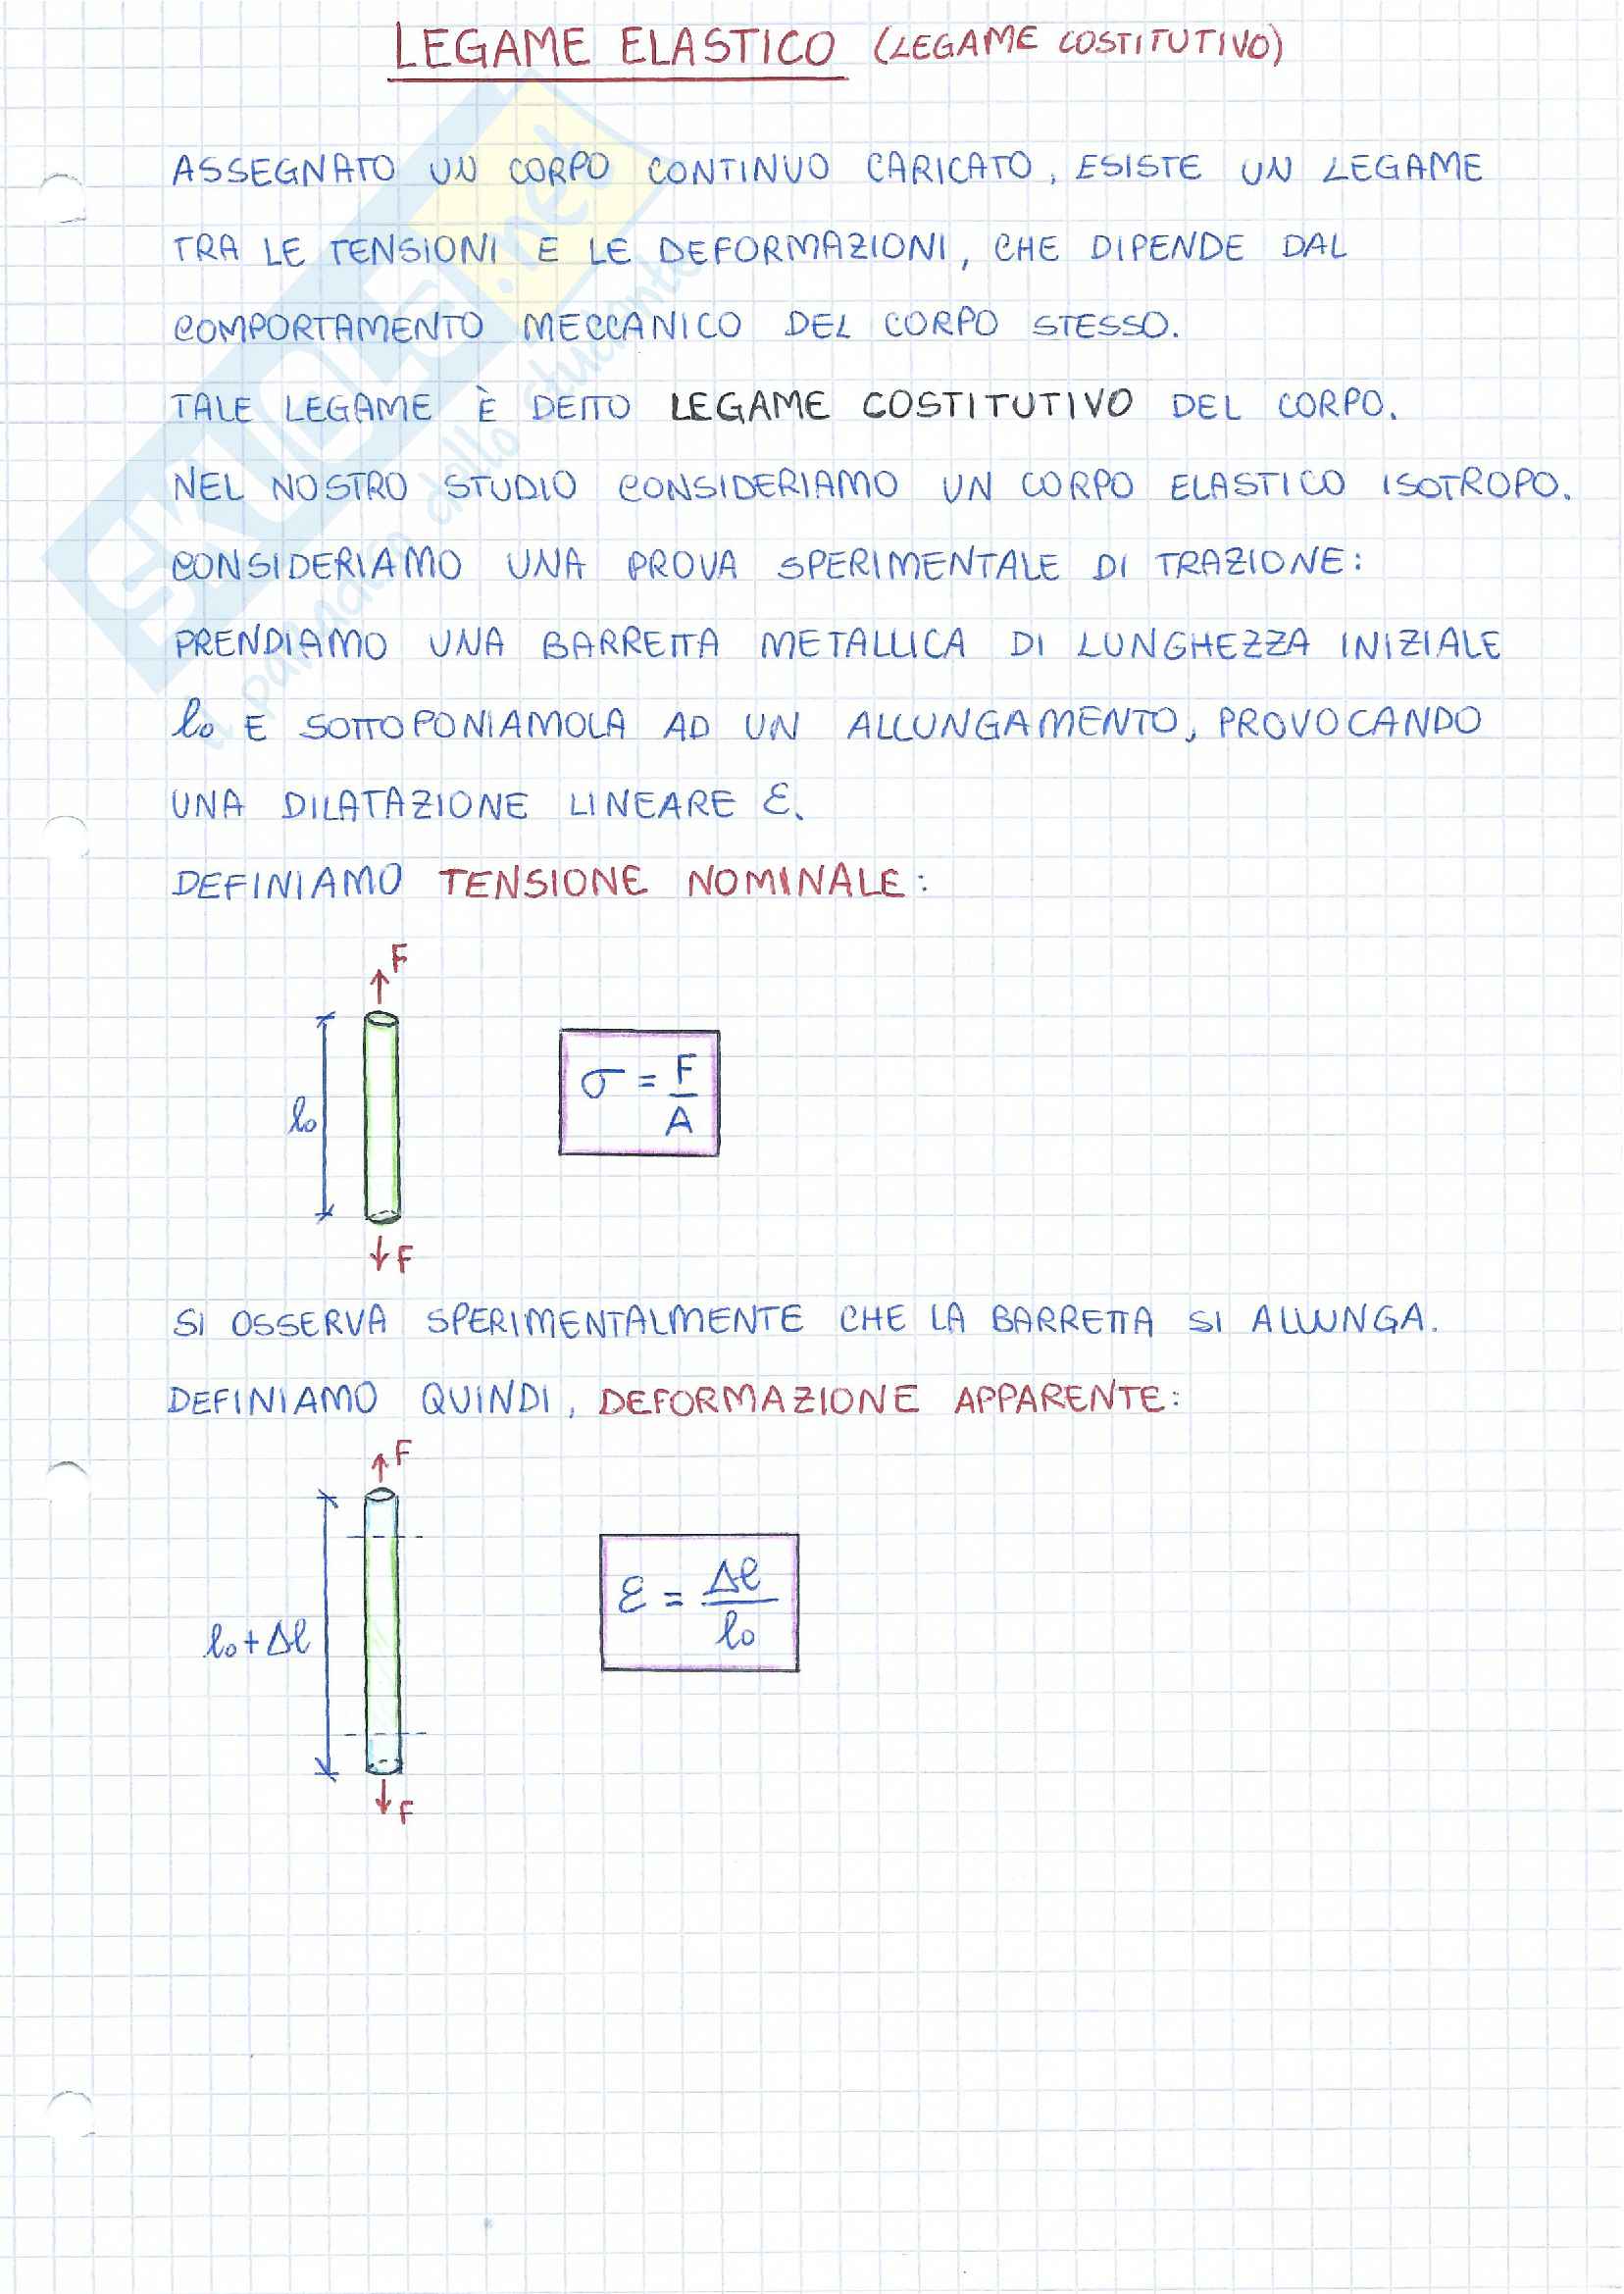 LEGAME ELASTICO (LEGAME COSTITUTIVO)
ASSEGNATO UN CORPO CONTINUO CARICATO, ESISTE UN LEGAME
TRA LE TENSIONI E LE DEFORMAZIONI, CHE DIPENDE DAL
COMPORTAMENTO MECCANICO DEL CORPO STESSO.
TALE LEGAME È DETTO LEGAME COSTITUTIVO DEL CORPO.
NEL NOSTRO STUDIO CONSIDERIAMO UN CORPO ELASTICO ISOTROPO.
CONSIDERIAMO UNA PROVA SPERIMENTALE DI TRAZIONE:
PRENDIAMO UNA BARRETTA METALLICA DI LUNGHEZZA INIZIALE
l₀ E SOTTOPONIAMOLA AD UN ALLUNGAMENTO, PROVOCANDO
UNA DILATAZIONE LINEARE ε.
DEFINIAMO TENSIONE NOMINALE:
F
l₀
σ = F/A
F
SI OSSERVA SPERIMENTALMENTE CHE LA BARRETTA SI ALLUNGA.
DEFINIAMO QUINDI, DEFORMAZIONE APPARENTE:
F
l₀+Δl
ε = Δl/l₀
F
SKUOLA.net
il paradiso dello studente